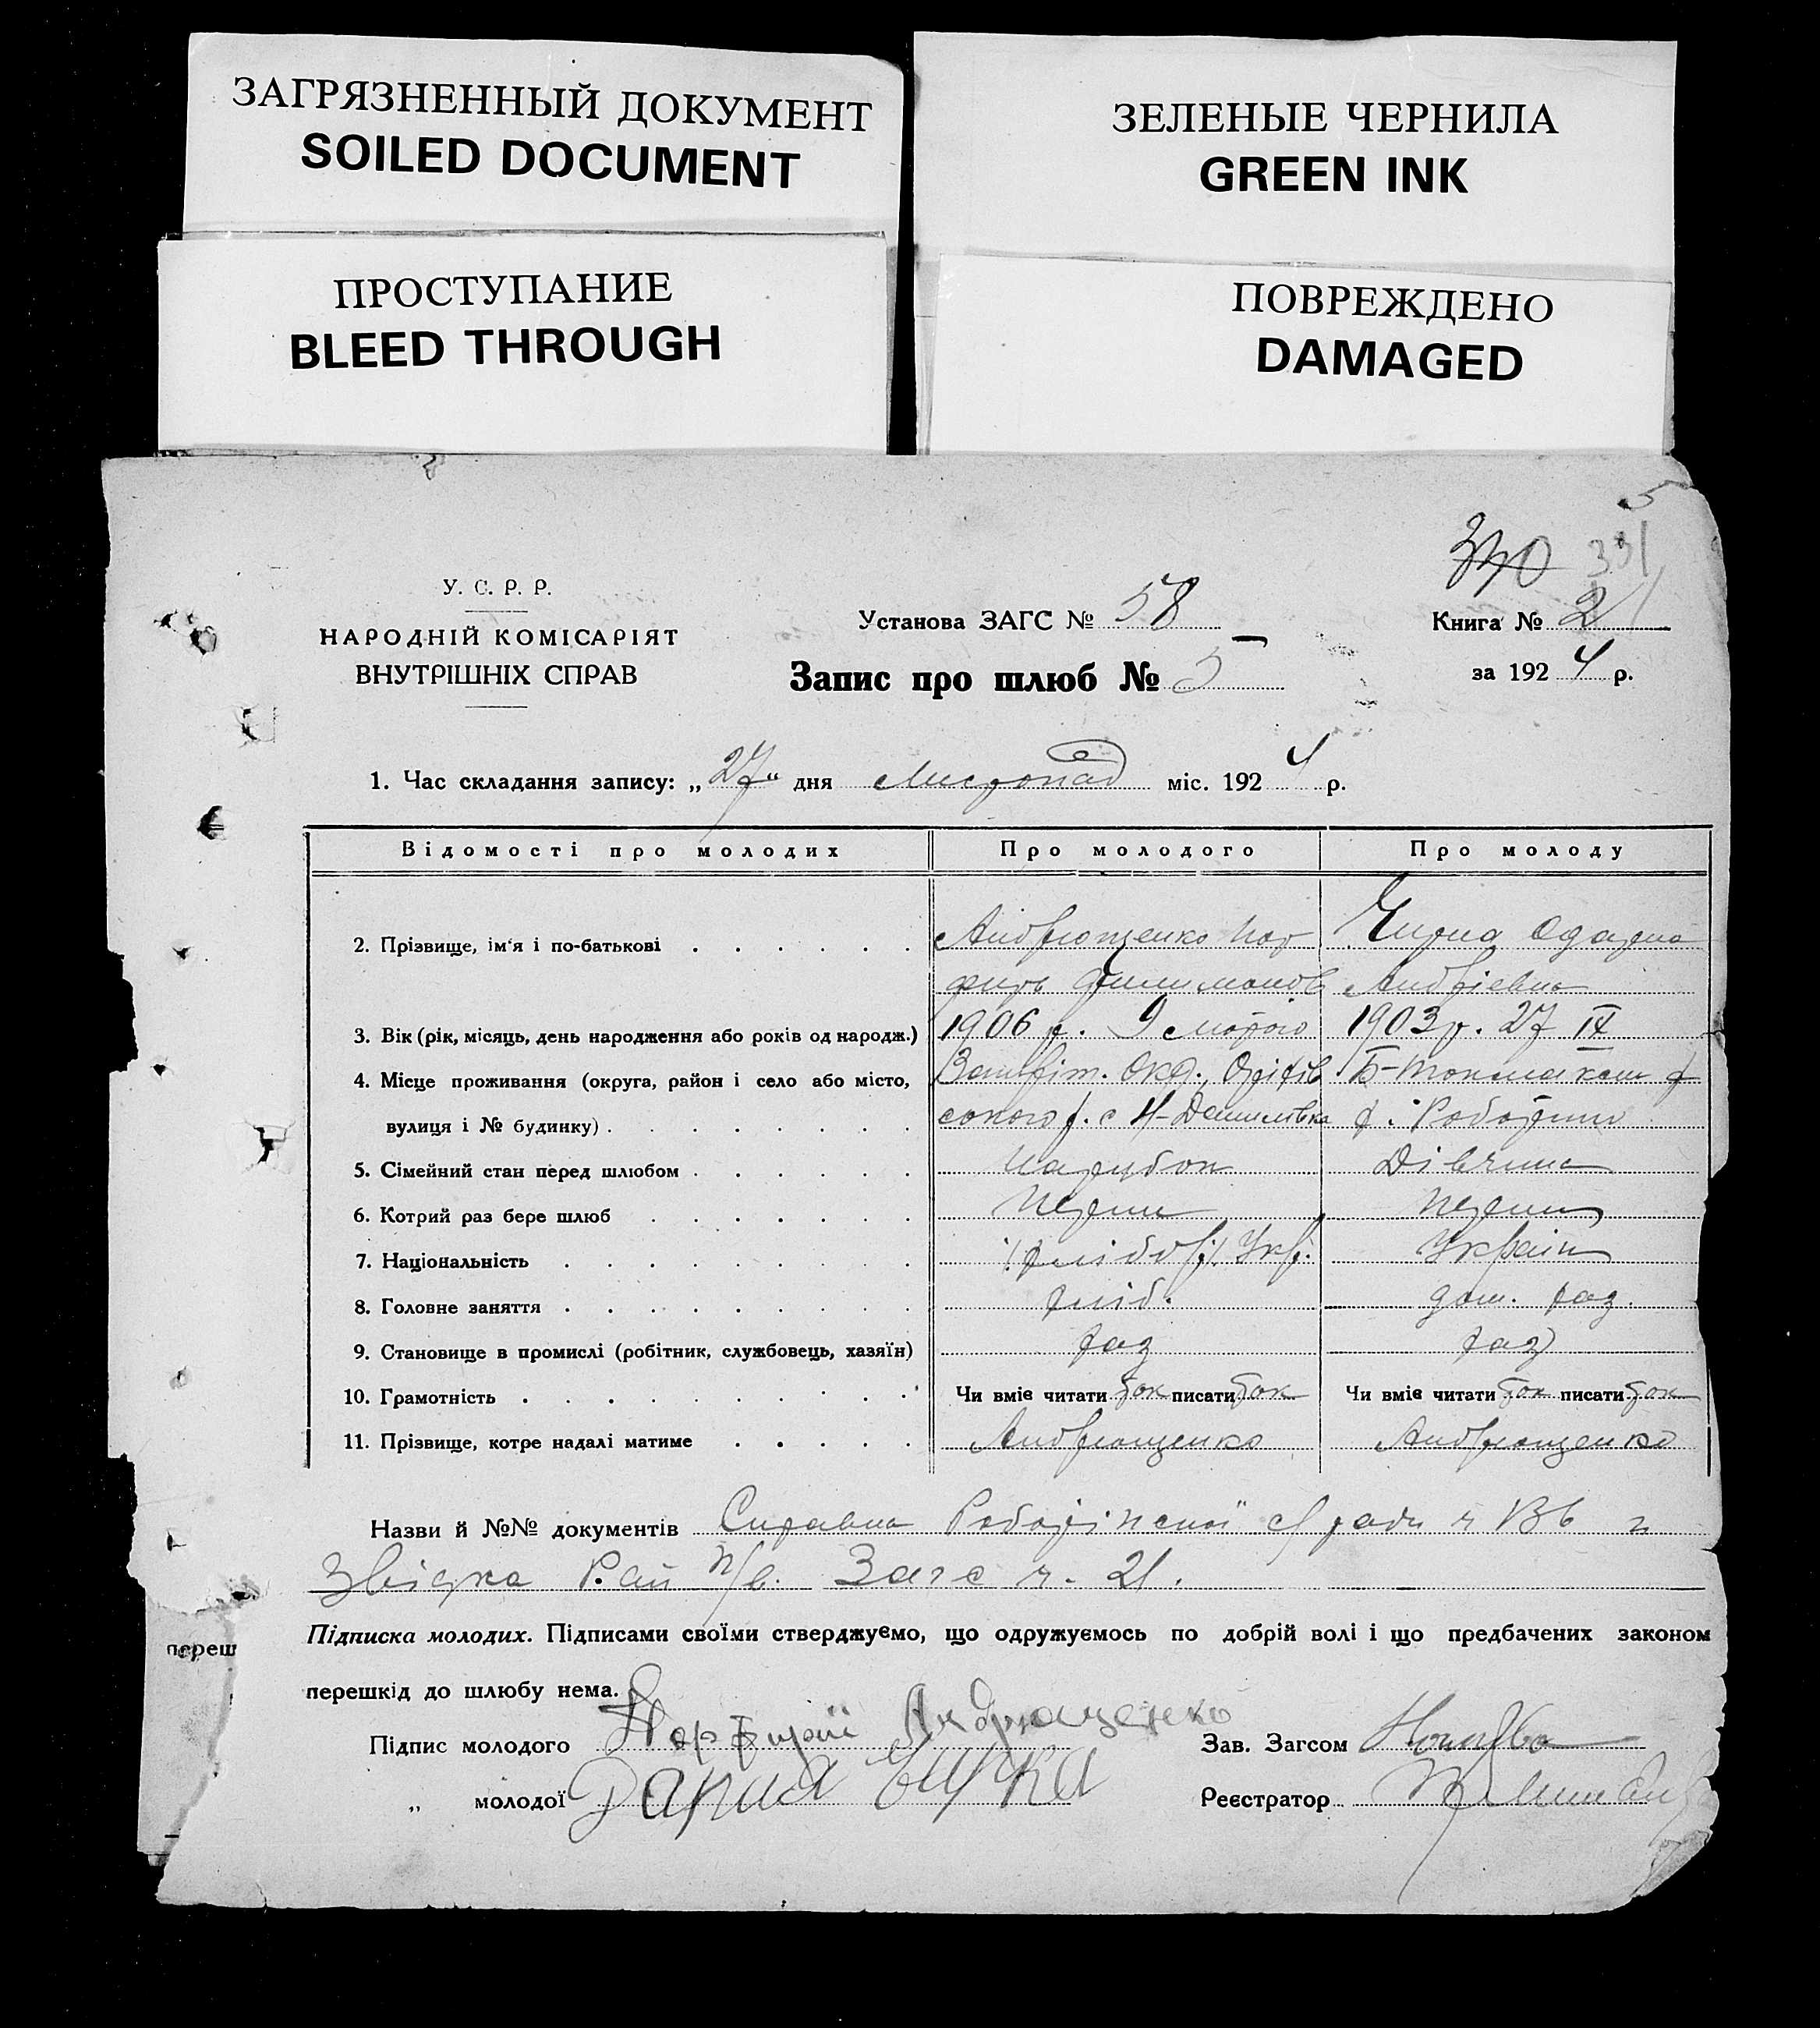 ЗАГРЯЗНЕННЫЙ ДОКУМЕНТ
SOILED DOCUMENT
ЗЕЛЕНЫЕ ЧЕРНИЛА
GREEN INK
ПРОСТУПАНИЕ
BLEED THROUGH
ПОВРЕЖДЕНО
DAMAGED
5
331
У. С. Р. Р.
НАРОДНІЙ КОМІСАРІЯТ
ВНУТРІШНІХ СПРАВ
Установа ЗАГС № 58
Книга № 2
Запис про шлюб № 5
за 1924 р.
1. Час складання запису: „27“ дня Листопад міс. 1924 р.
Відомості про молодих Про молодого Про молоду
2. Прізвище, ім'я і по-батькові Андрющенко Пор Одарка
фирь Филимонов Андріевна
3. Вік (рік, місяць, день народження або років од народж.) 1906 р. 9 лютого 1903 р. 27 IX
4. Місце проживання (округа, район і село або місто, Запоріж. Окр., Оріхів Б-Токмакськ р
вулиця і № будинку) ського р. с Н-Данилівка
5. Сімейний стан перед шлюбом Парубок Дівчина
6. Котрий раз бере шлюб Перший Перший
7. Національність Укр. Україн
8. Головне заняття хліб. дом. хаз.
9. Становище в промислі (робітник, службовець, хазяїн) хаз хаз
10. Грамотність Чи вміє читати так писати так Чи вміє читати так писати так
11. Прізвище, котре надалі матиме Андрющенко Андрющенко
Назви й №№ документів Справка с/ради ч
Звідка Рай Загс ч. 21.
Підписка молодих. Підписами своїми стверджуємо, що одружуємось по добрій волі і що предбачених законом
переш
перешкід до шлюбу нема.
Підпис молодого Порфирій Андрющенко Зав. Загсом
„ молодої Реєстратор